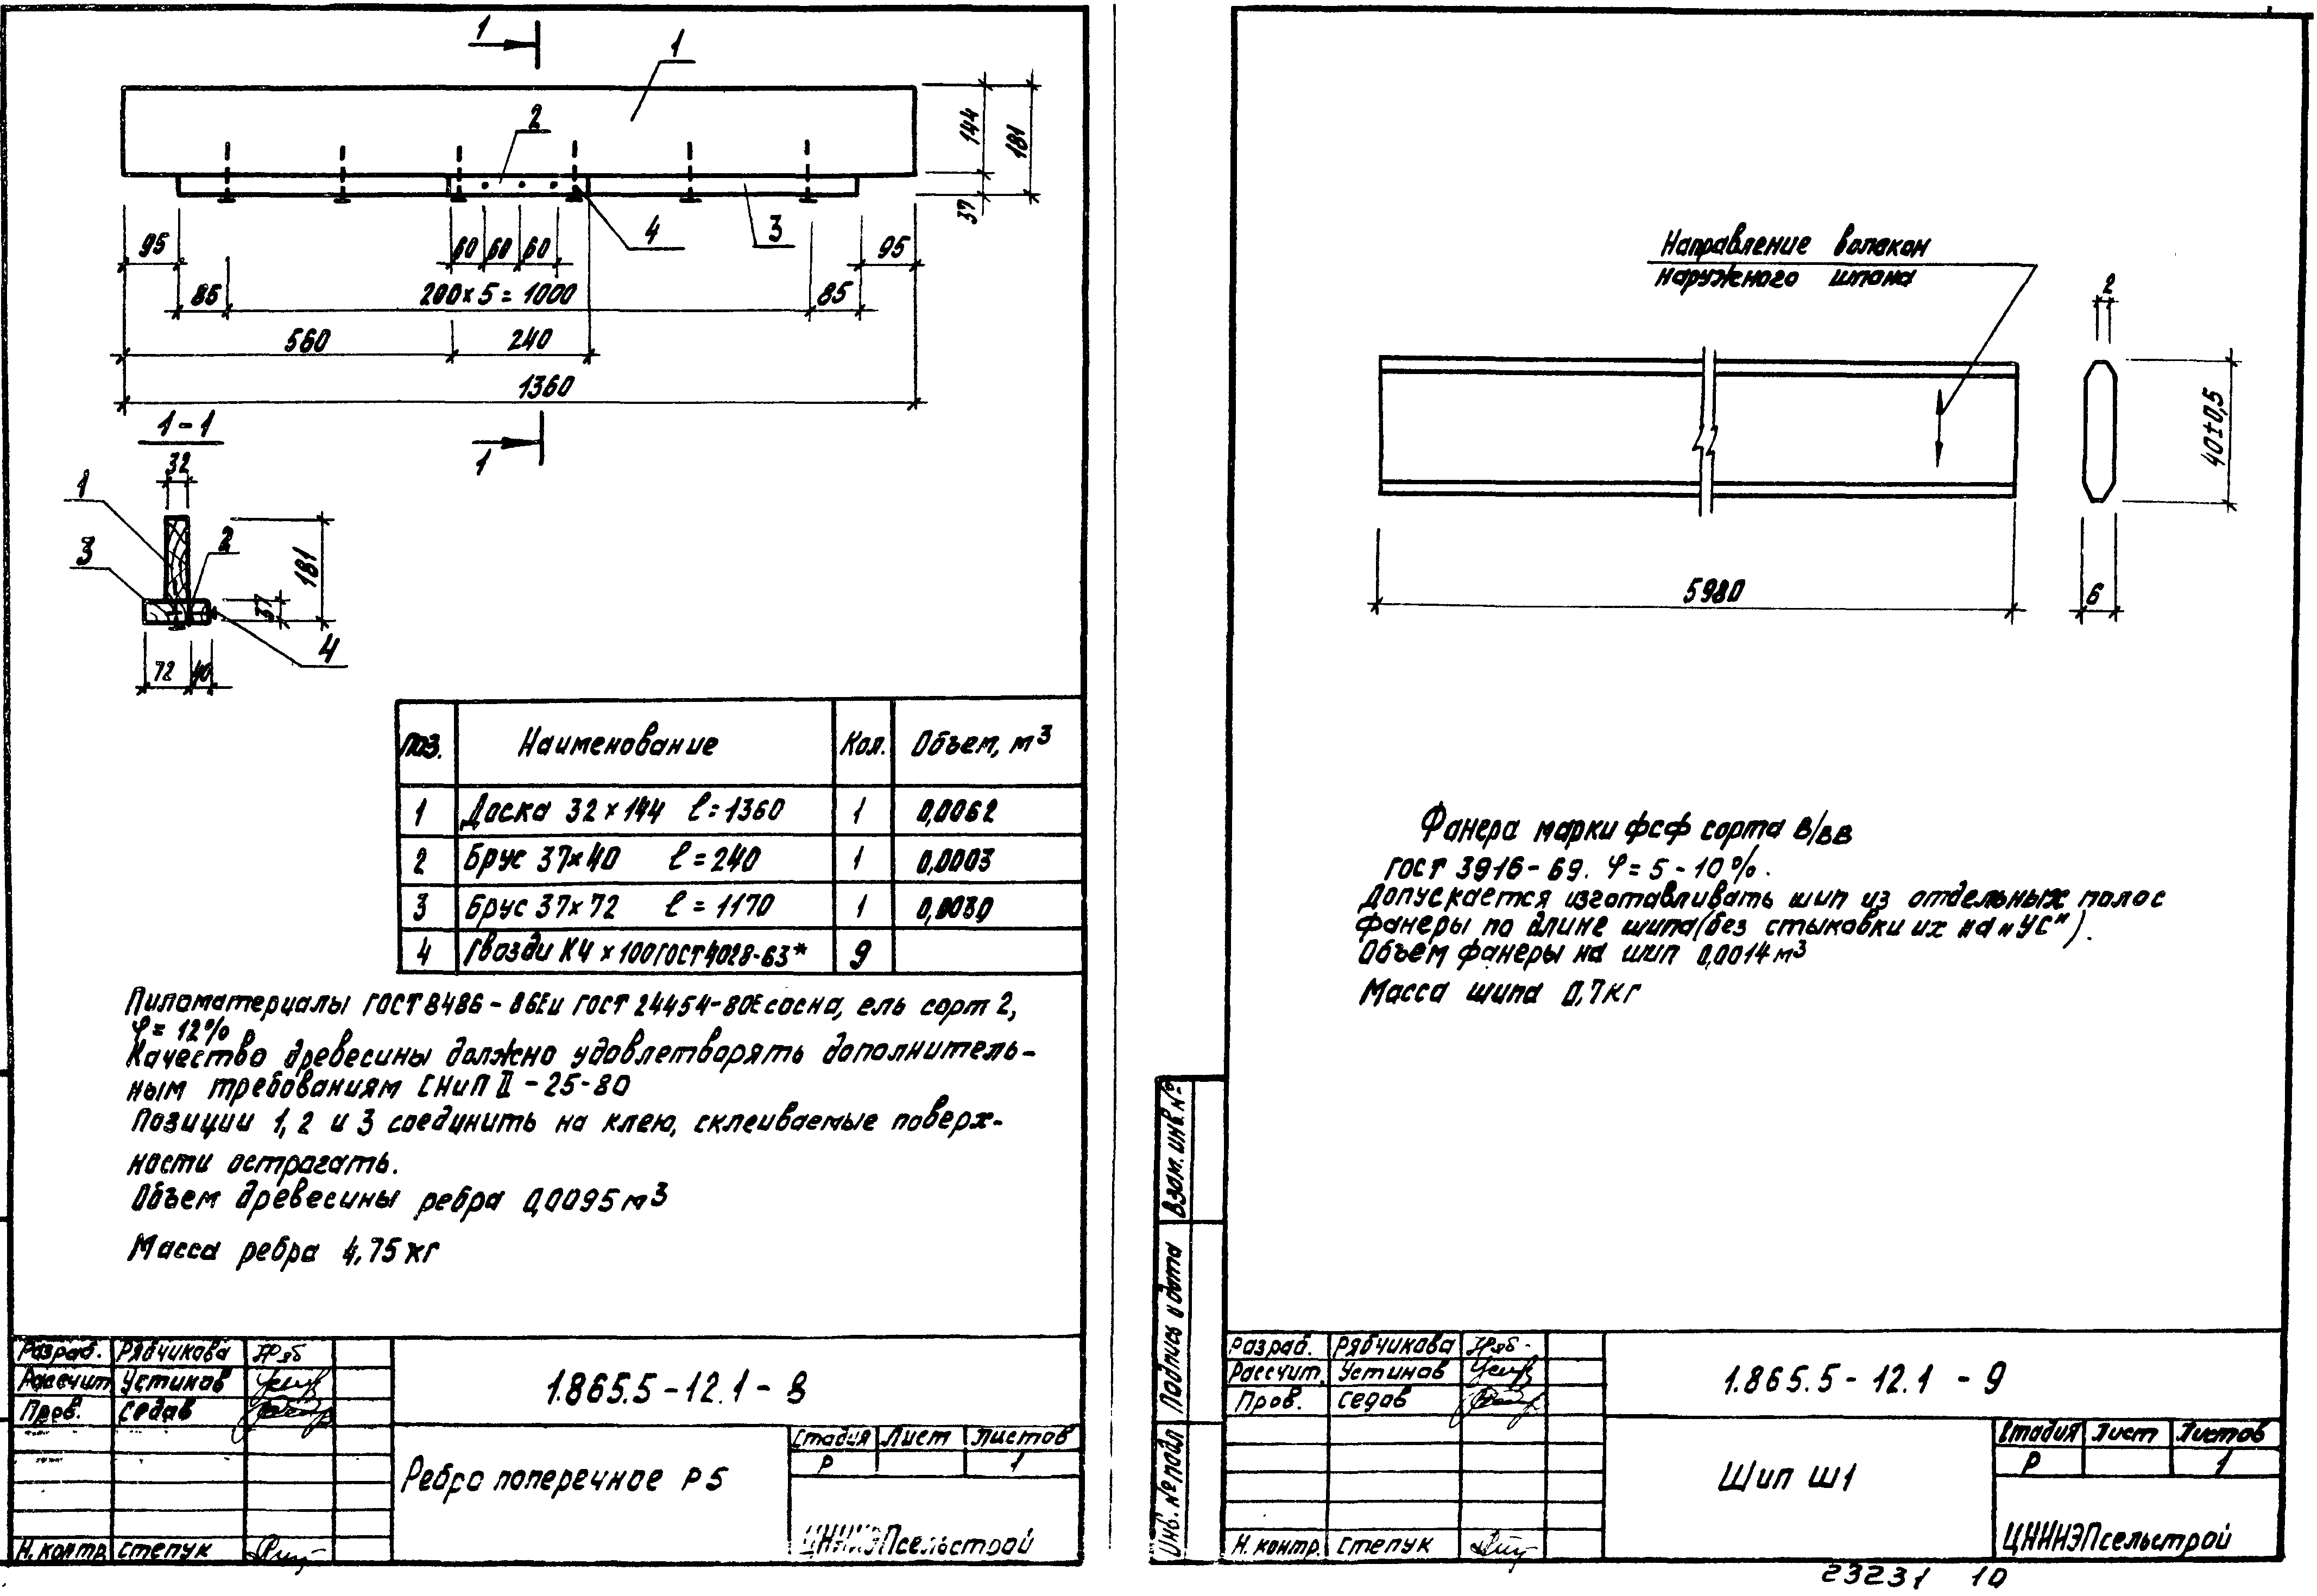 1
1
2
144
181
37
4
3
95
60 60 60
95
85
200×5=1000
85
560
240
1360
1-1
1
32
1
3
2
181
37
4
72
40
Поз. Наименование Кол. Объем, м³
1 Доска 32×144 ℓ=1360 1 0,0062
2 Брус 37×40 ℓ=240 1 0,0003
3 Брус 37×72 ℓ=1170 1 0,0030
4 Гвозди К4×100 ГОСТ 4028-63* 9
Пиломатериалы ГОСТ 8486-86Е и ГОСТ 24454-80Е сосна, ель сорт 2,
φ=12%
Качество древесины должно удовлетворять дополнитель-
ным требованиям СНиП II-25-80
Позиции 1, 2 и 3 соединить на клею, склеиваемые поверх-
ности острагать.
Объем древесины ребра 0,0095 м³
Масса ребра 4,75 кг
Разраб. Рябчикова
Рассчит. Устинов
Пров. Седов
Н. контр. Степук
1.865.5-12.1-8
Ребро поперечное Р5
Стадия Лист Листов
Р 1
ЦНИИЭПсельстрой
Направление волокон
наружного шпона
2
40±0,5
5980
6
Фанера марки ФСФ сорта В/ВВ
ГОСТ 3916-69. φ=5-10%.
Допускается изготавливать шип из отдельных полос
фанеры по длине шипа (без стыковки их на „УС").
Объем фанеры на шип 0,0014 м³
Масса шипа 0,7 кг
Взам. инв. №
Подпись и дата
Инв. № подл
Разраб. Рябчикова
Рассчит. Устинов
Пров. Седов
Н. контр. Степук
1.865.5-12.1-9
Шип Ш1
Стадия Лист Листов
Р 1
ЦНИИЭПсельстрой
23231 10